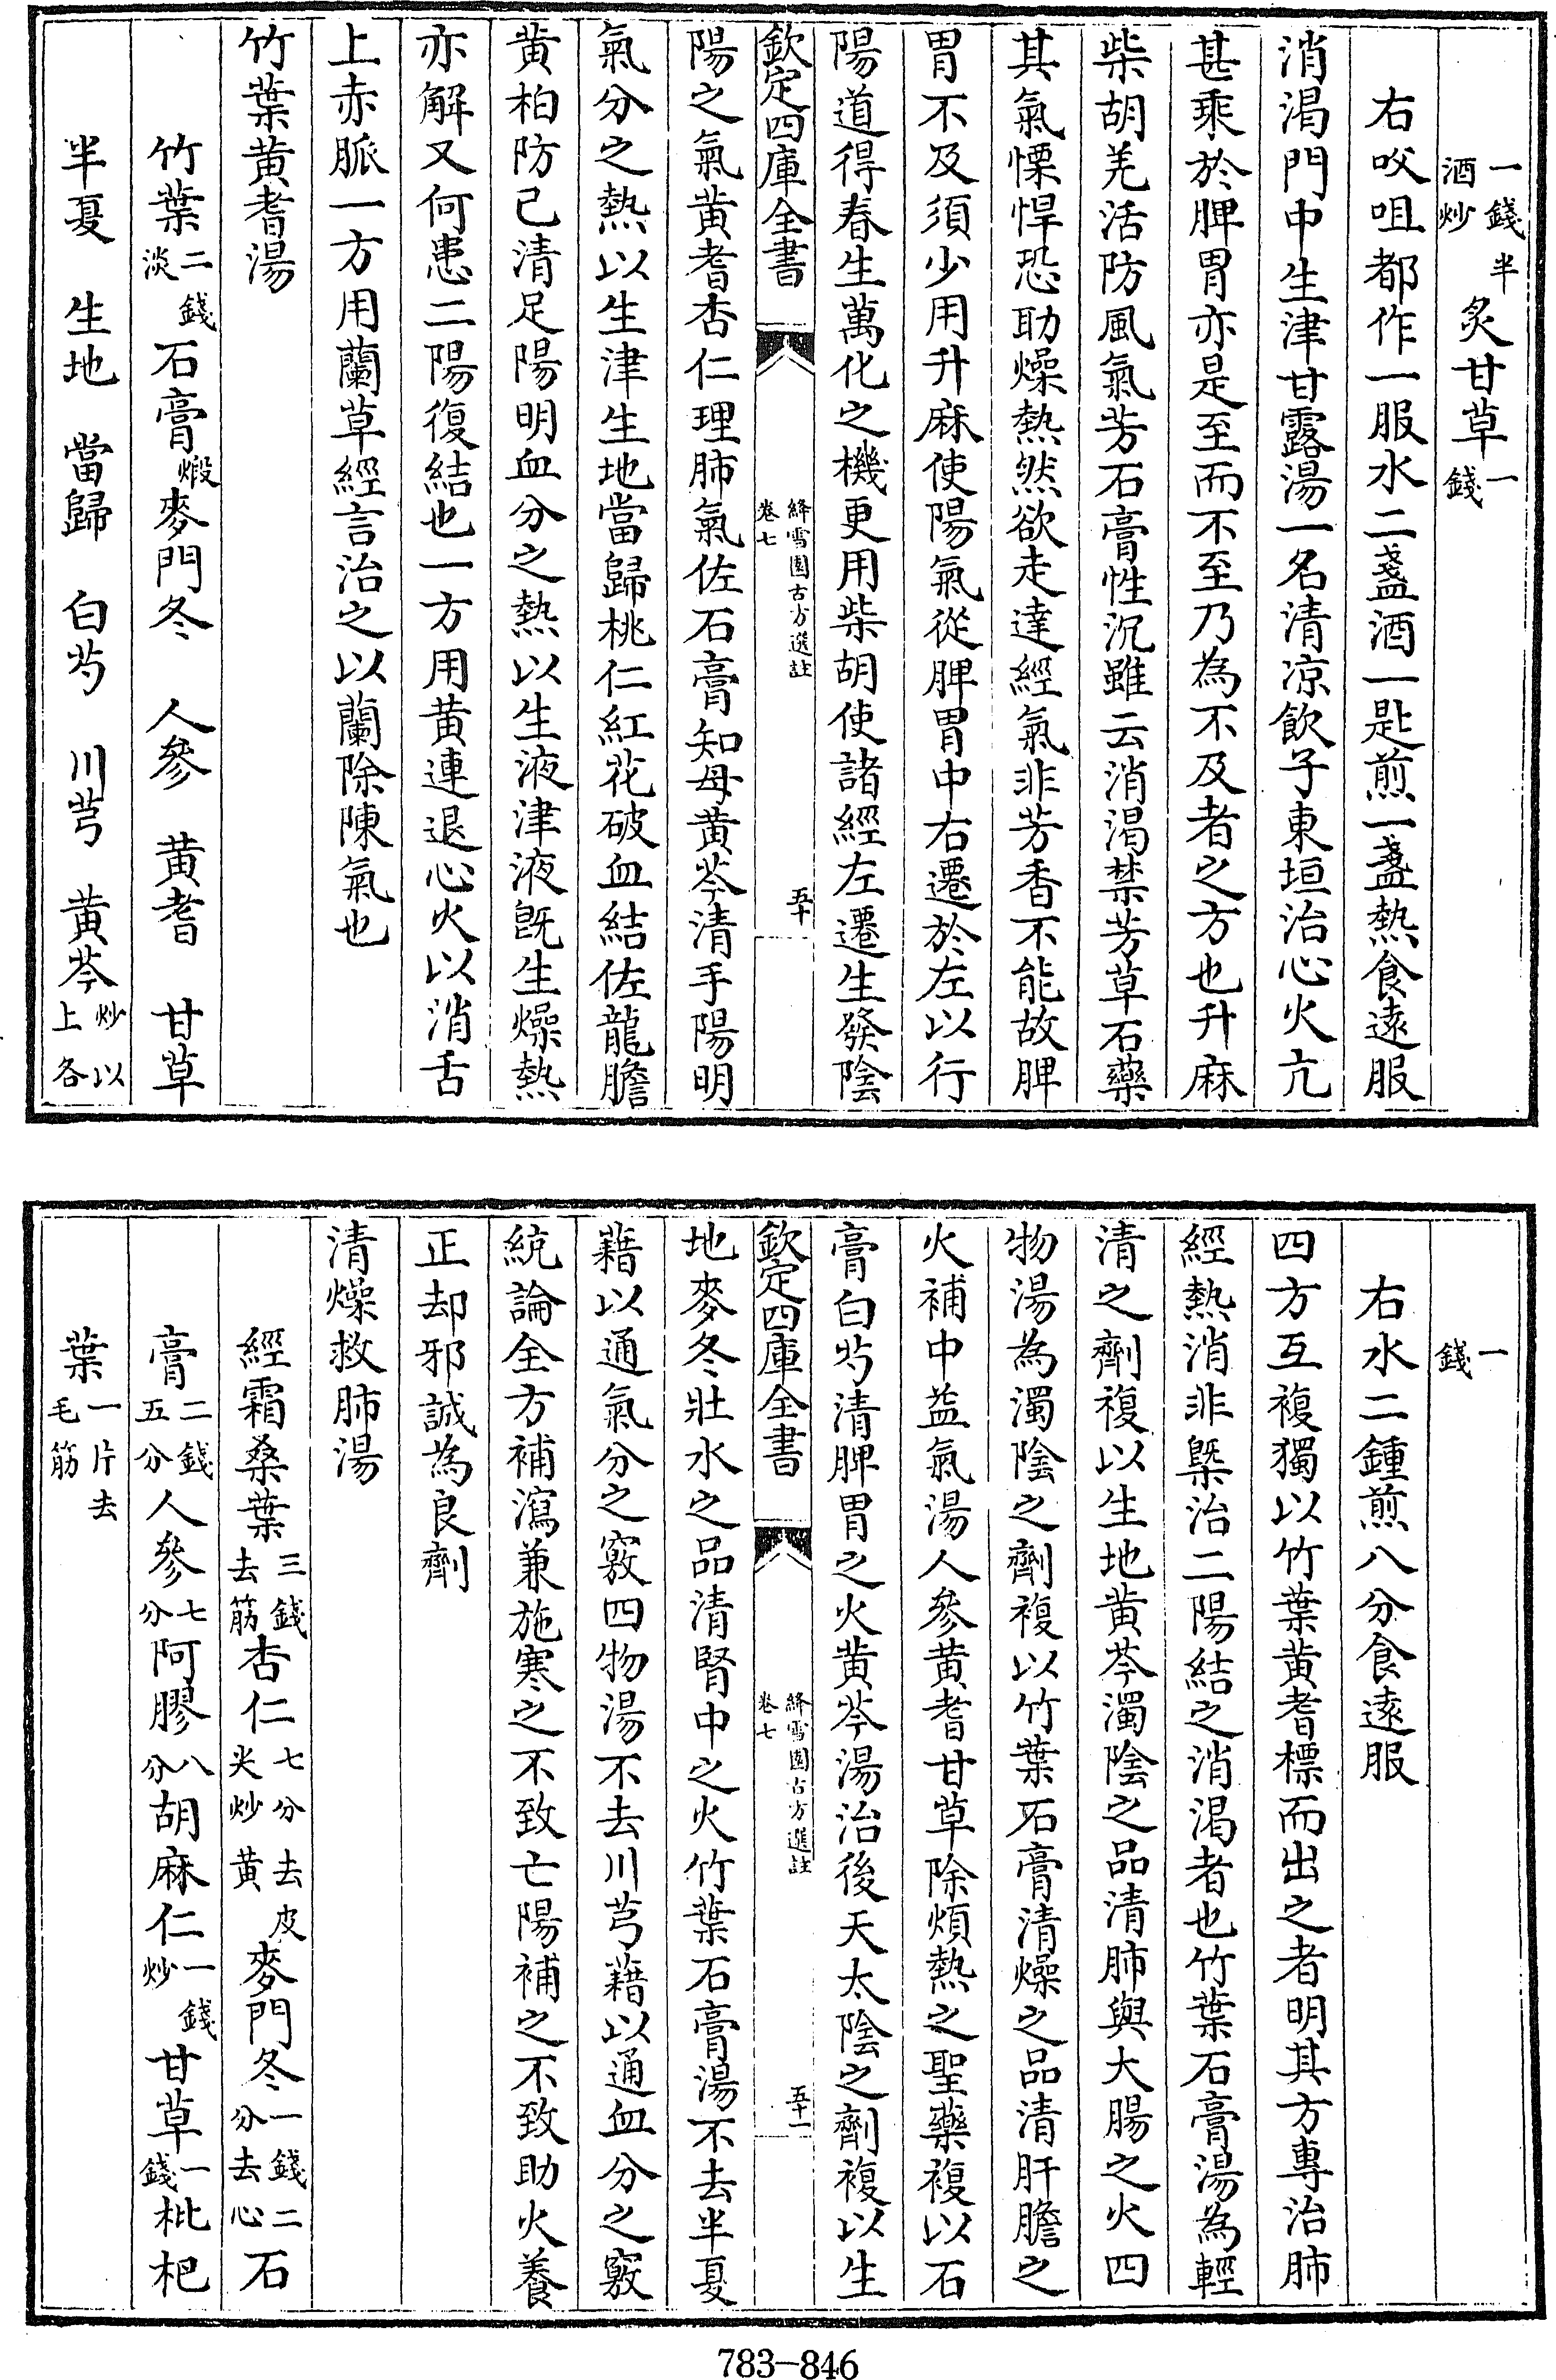 一錢半酒炒炙甘草一錢
右㕮咀都作一服水二盞酒一匙煎一盞熱食遠服
消渴門中生津甘露湯一名清凉飲子東垣治心火亢
甚乘於脾胃亦是至而不至乃為不及者之方也升麻
柴胡羌活防風氣芳石膏性沉雖云消渴禁芳草石藥
其氣慄悍恐助燥熱然欲走達經氣非芳香不能故脾
胃不及須少用升麻使陽氣從脾胃中右遷於左以行
陽道得春生萬化之機更用柴胡使諸經左遷生發陰
欽定四庫全書
絳雪園古方選註
卷七
五十
陽之氣黄耆杏仁理肺氣佐石膏知母黄芩清手陽明
氣分之熱以生津生地當歸桃仁紅花破血結佐龍膽
黄柏防己清足陽明血分之熱以生液津液既生燥熱
亦解又何患二陽復結也一方用黄連退心火以消舌
上赤脈一方用蘭草經言治之以蘭除陳氣也
竹葉黄耆湯
竹葉二錢淡石膏煅麥門冬 人參 黄耆 甘草
半夏 生地 當歸 白芍 川芎 黄芩炒以上各
一錢
右水二鍾煎八分食遠服
四方互複獨以竹葉黄耆標而出之者明其方專治肺
經熱消非槩治二陽結之消渴者也竹葉石膏湯為輕
清之劑複以生地黄芩濁陰之品清肺與大腸之火四
物湯為濁陰之劑複以竹葉石膏清燥之品清肝膽之
火補中益氣湯人參黄耆甘草除煩熱之聖藥複以石
膏白芍清脾胃之火黄芩湯治後天太陰之劑複以生
欽定四庫全書
絳雪園古方選註
卷七
五十一
地麥冬壯水之品清腎中之火竹葉石膏湯不去半夏
藉以通氣分之竅四物湯不去川芎藉以通血分之竅
統論全方補瀉兼施寒之不致亡陽補之不致助火養
正却邪誠為良劑
清燥救肺湯
經霜桑葉三錢去筋杏仁七分去皮尖炒黄麥門冬一錢二分去心石
膏二錢五分人參七分阿膠八分胡麻仁一錢炒甘草一錢枇杷
葉一片去毛筋
783-846